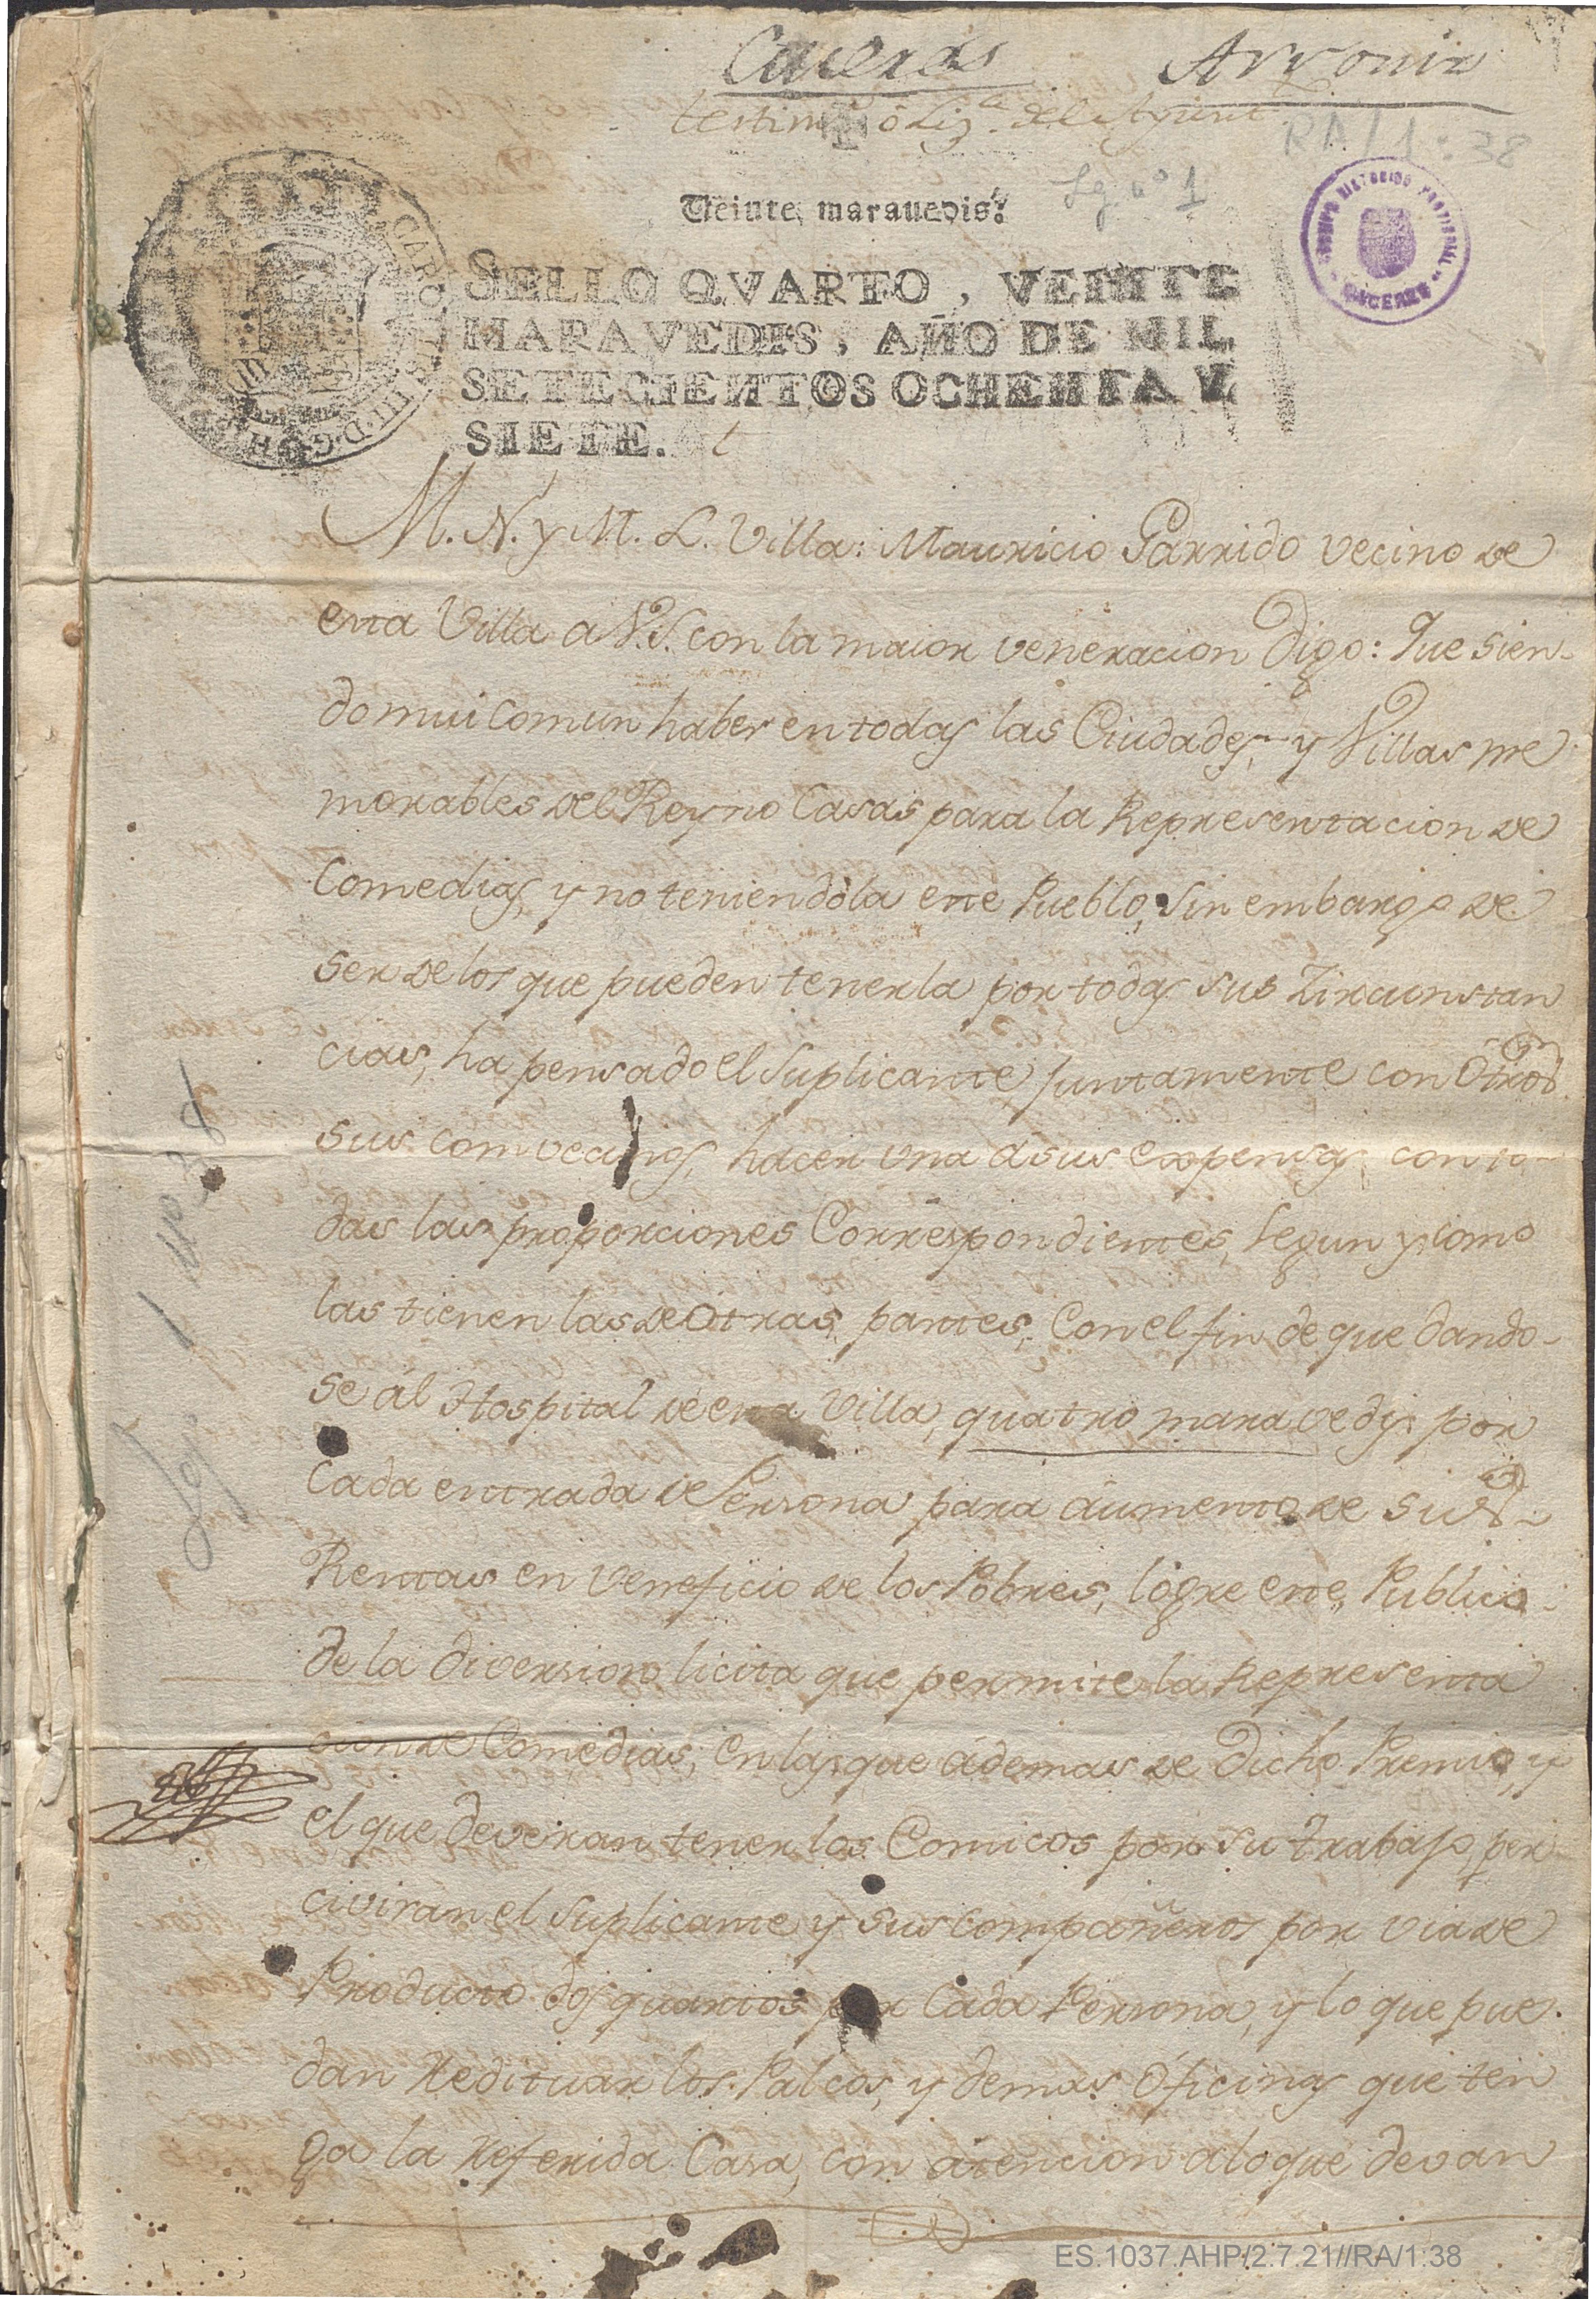 Caceres Arxonia
testimo o Liz.a del Ayunt
RA/1:38
Lg. nº 1
Veinte marauedis.
SELLO QVARTO, VEINTE
MARAVEDIS, AÑO DE MIL
SETECIENTOS OCHENTA Y
SIETE.
CAROLUS III D.G.
ARCHIVO HISTORICO PROVINCIAL
CACERES
M. N. y M. L. Villa: Mauricio Garrido vecino de
esta Villa a V.S. con la maior veneracion Digo: Que sien-
do mui comun haber en todas las Ciudades, y Villas me
morables del Reyno Casas para la Representacion de
Comedias, y no teniendola este Pueblo, sin embargo de
ser de los que pueden tenerla por todas sus Zircunstan
cias, ha pensado el Suplicante juntamente con Otros
sus convecinos, hacer una á sus expensas, con to-
das las proporciones Correspondientes, segun y como
las tienen las de Otras partes, Con el fin de que dando-
se ál Hospital de esta Villa, quatro maravedis por
Cada entrada de Persona para áumento de sus
Rentas en Veneficio de los Pobres, logre este Publico
de la diversion licita que permite la Representa
cion de Comedias; en las que ádemas de Dicho Premio, y
el que deveran tener los Comicos por su trabajo, per
civiran el Suplicante y sus compañeros por via de
Producto dos quartos por Cada Persona, y lo que pue-
dan Redituar los Palcos, y demas Oficinas que ten
ga la Referida Casa, con átencion a lo que devan
Lg. 1 nº 38
ES.1037.AHP/2.7.21//RA/1:38